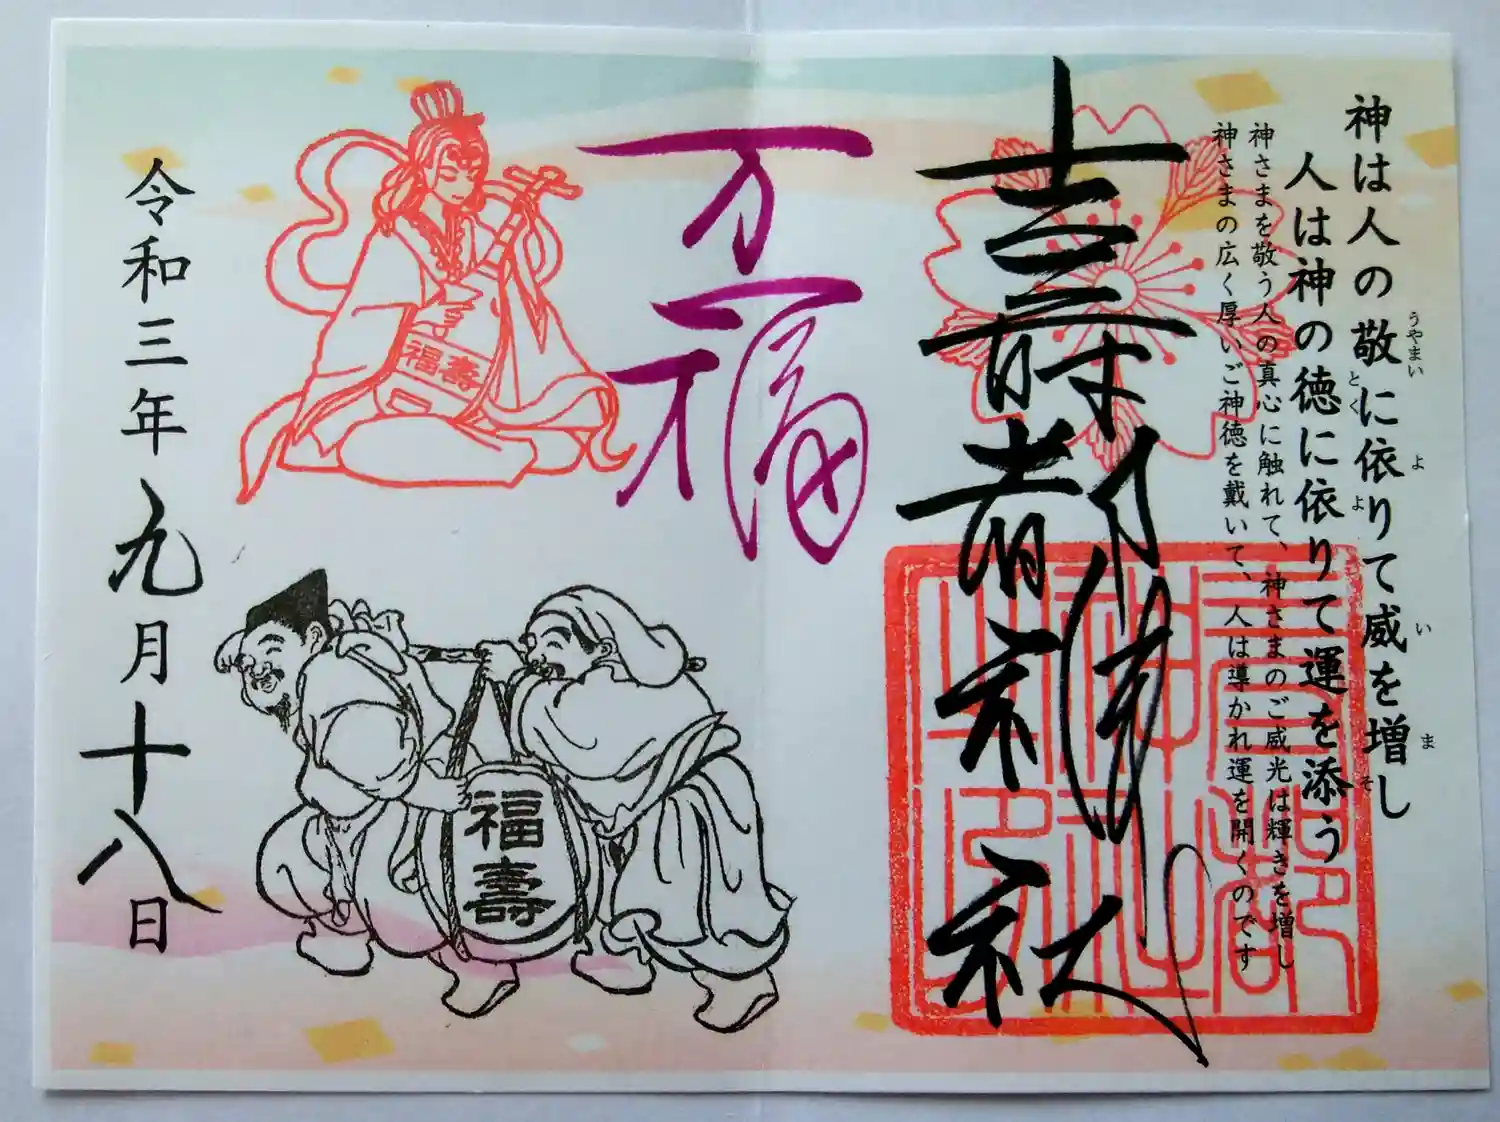 神は人の敬に依りて威を増し
うやまい よ い ま
人は神の徳に依りて運を添う
とく よ そ
神さまを敬う人の真心に触れて、神さまのご威光は輝きを増し
神さまの広く厚いご神徳を戴いて、人は導かれ運を開くのです
壽都神社
万福
福壽
福壽
令和三年九月十八日